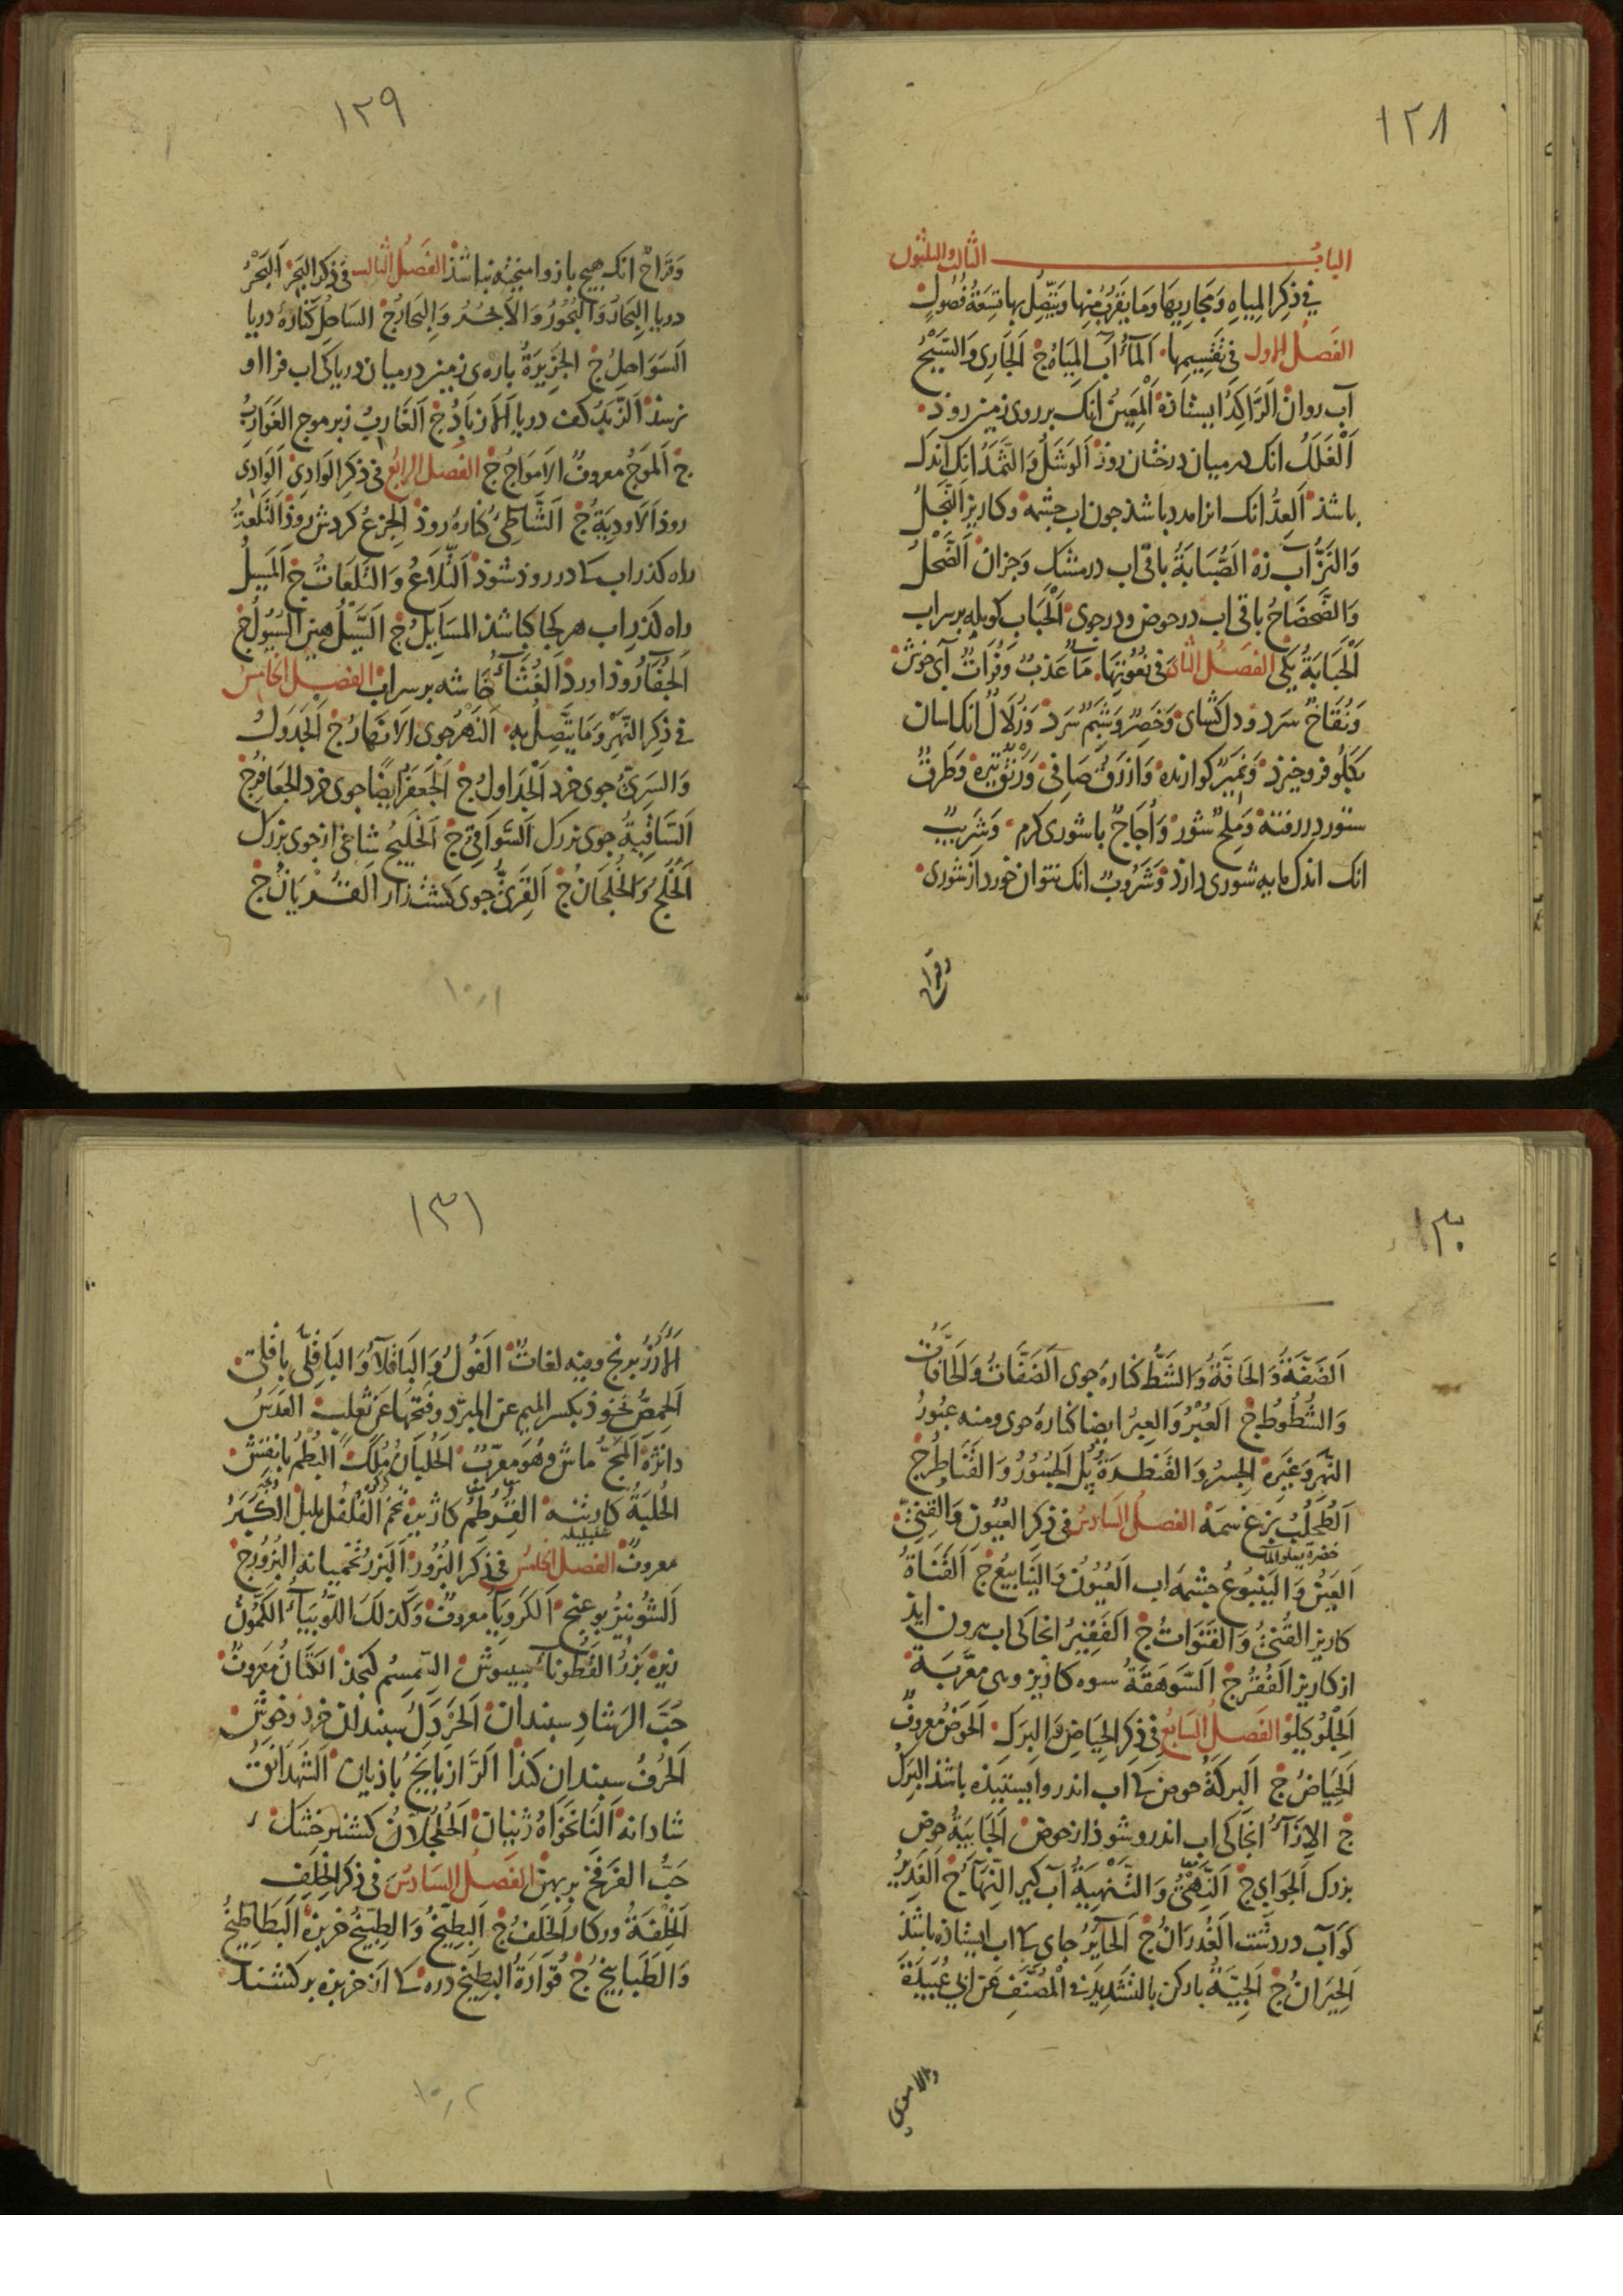 ١٢٨
الباب الثالث والثلثون
في ذكر المياه ومجاريها وما يقرب منها ويتصل بها تسعة فصول
الفصل الاول في تقسيمها الماء آب المياه ج الجاري والسيح
آب روان الراكد ايستاذه المعين انك بر روى زمين روذ
الغلل انك در ميان درختان روذ الوشل والثمد انك اندك
باشذ العد انك انرا مدد باشذ جون اب جشمه وكاريز النجل
والنز آب زه الصبابة باقى اب در مشك وجزان الضحل
والضحضاح باقى اب در حوض ودر جوى الحباب كوبله بر سر اب
الحبابة يكى الفصل الثانى فى نعوتها ماء عذب وفرات آبى خوش
ونقاخ سرد ودل كشاى وخصر وشبم سرد وزلال انك اسان
بكلو فرو خيزد ونمير كوارنده وازرق صافى ورنق تيره وطرق
ستور در رفته وملح شور واجاج با شورى كرم وشريب
انك اندك مايه شورى دارد وشروب انك نتوان خورد از شورى
وقراح
١٢٩
وقراح انك هيج باز وامنيخته نباشذ الفصل الثالث فى ذكر البحر البحر
دريا البحار والبحور والابحر والبحار ج الساحل كناره دريا
السواحل ج الجزيرة باره ى زمين در ميان دريا كى اب فرا او
نرسذ الزبد كف دريا الازباد ج الغارب زبر موج الغوارب
ج الموج معروف الامواج ج الفصل الرابع فى ذكر الوادى الوادى
روذ الاودية ج الشاطئ كناره روذ الجزع كردش روذ التلعة
راه كذر اب كا در روذ شوذ التلاع والتلعات ج المسيل
راه كذر اب هر كجا كا باشذ المسايل ج السيل هين السيول ج
الجفاء روذ اورد الغثاء خاشه بر سر اب الفصل الخامس
فى ذكر النهر وما يتصل به النهر جوى الانهار ج الجدول
والسرى جوى خرد الجداول ج الجعفر ايضا جوى خرد الجعافر ج
الساقية جوى بزرك السواقى ج الخليج شاخى از جوى بزرك
الخلج والخلجان ج القرى جوى كشت زار القريان ج
١٠١
١٣٠
الضفة والحافة والشط كناره جوى الضفات والحافات
والشطوط ج العبر والعبر ايضا كناره جوى ومنه عبور
النهر وغيره الجسر والقنطرة پل الجسور والقناطر ج
الطحلب بزغ سمه الفصل السادس فى ذكر العيون والقنى
خضرة يعلو الماء
العين والينبوع جشمه اب العيون والينابيع ج القناة
كاريز القنى والقنوات ج الفقير انجا كى اب بيرون ايذ
از كاريز الفقر ج السوهقة سوه كاريز وهى معربة
الفصل السابع فى ذكر الحياض والبرك الحوض معروف
الحياض ج البركة حوضى كا اب اندر وا يستيذه باشذ البرك
ج الازاء انجا كى اب اندرو شوذ از حوض الجابية حوض
بزرك الجوابى ج النهى والتنهية آب كير النهاء ج الغدير
كو آب در دشت الغدران ج الحاير جاى كا اب ايستاذه باشذ
الحيران ج الجية باركن بالتشديد فى المصنف عن ابى عبيدة
١٣١
الارز برنج وفيه لغات الفول والباقلاء والباقلى باقلى
الحمص نخوذ بكسر الميم عن المبرد وفتحها عن ثعلب العدس
دانژه المج ماش وهو معرب الجلبان ملك البطم بانقش
الحلبة القرطم كاژيره تخم الفلفل بلبل الكبر
معروف الفصل الخامس فى ذكر البزور البزر تخميانه البزور ج
الشونيز بوغنج الكرويا معروف وكذلك اللوبياء الكمون
زيره بزر القطوناء سبيوش السمسم كنجذ الكتان معروف
حب الرشاد سبندان الخردل سبندان خرد وخوش
الحرف سبندان كنذا الرازيانج باذيان الشهدانق
شادانه النانخواه ژنيان الجلجلان كشنيز خشك
حب الفرفخ بربهن الفصل السادس فى ذكر الخلف
الخلفة وركار الخلف ج البطيخ والطبيخ خربزه البطاطيخ
والطبابيخ ج قوارة البطيخ دره كا از خربزه بر كشند
١٠٢